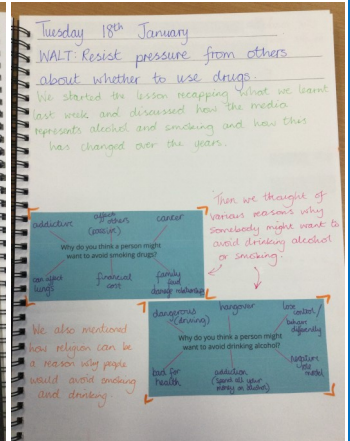 Tuesday 18th January
WALT: Resist pressure from others
about whether to use drugs.
We started the lesson recapping what we learnt
last week and discussed how the media
represents alcohol and smoking and how this
has changed over the years.
Then we thought of
various reasons why
somebody might want to
avoid drinking alcohol
or smoking.
addictive
affects
others
(passive)
cancer
Why do you think a person might
want to avoid smoking drugs?
lungs
financial
cost
family
damage relationships
We also mentioned
how religion can be
a reason why people
would avoid smoking
and drinking.
dangerous
(driving)
hangover
lose
control/
behave
differently
Why do you think a person might
want to avoid drinking alcohol?
bad for
health
addiction
(spend all your
money on alcohol)
Negative
role
model